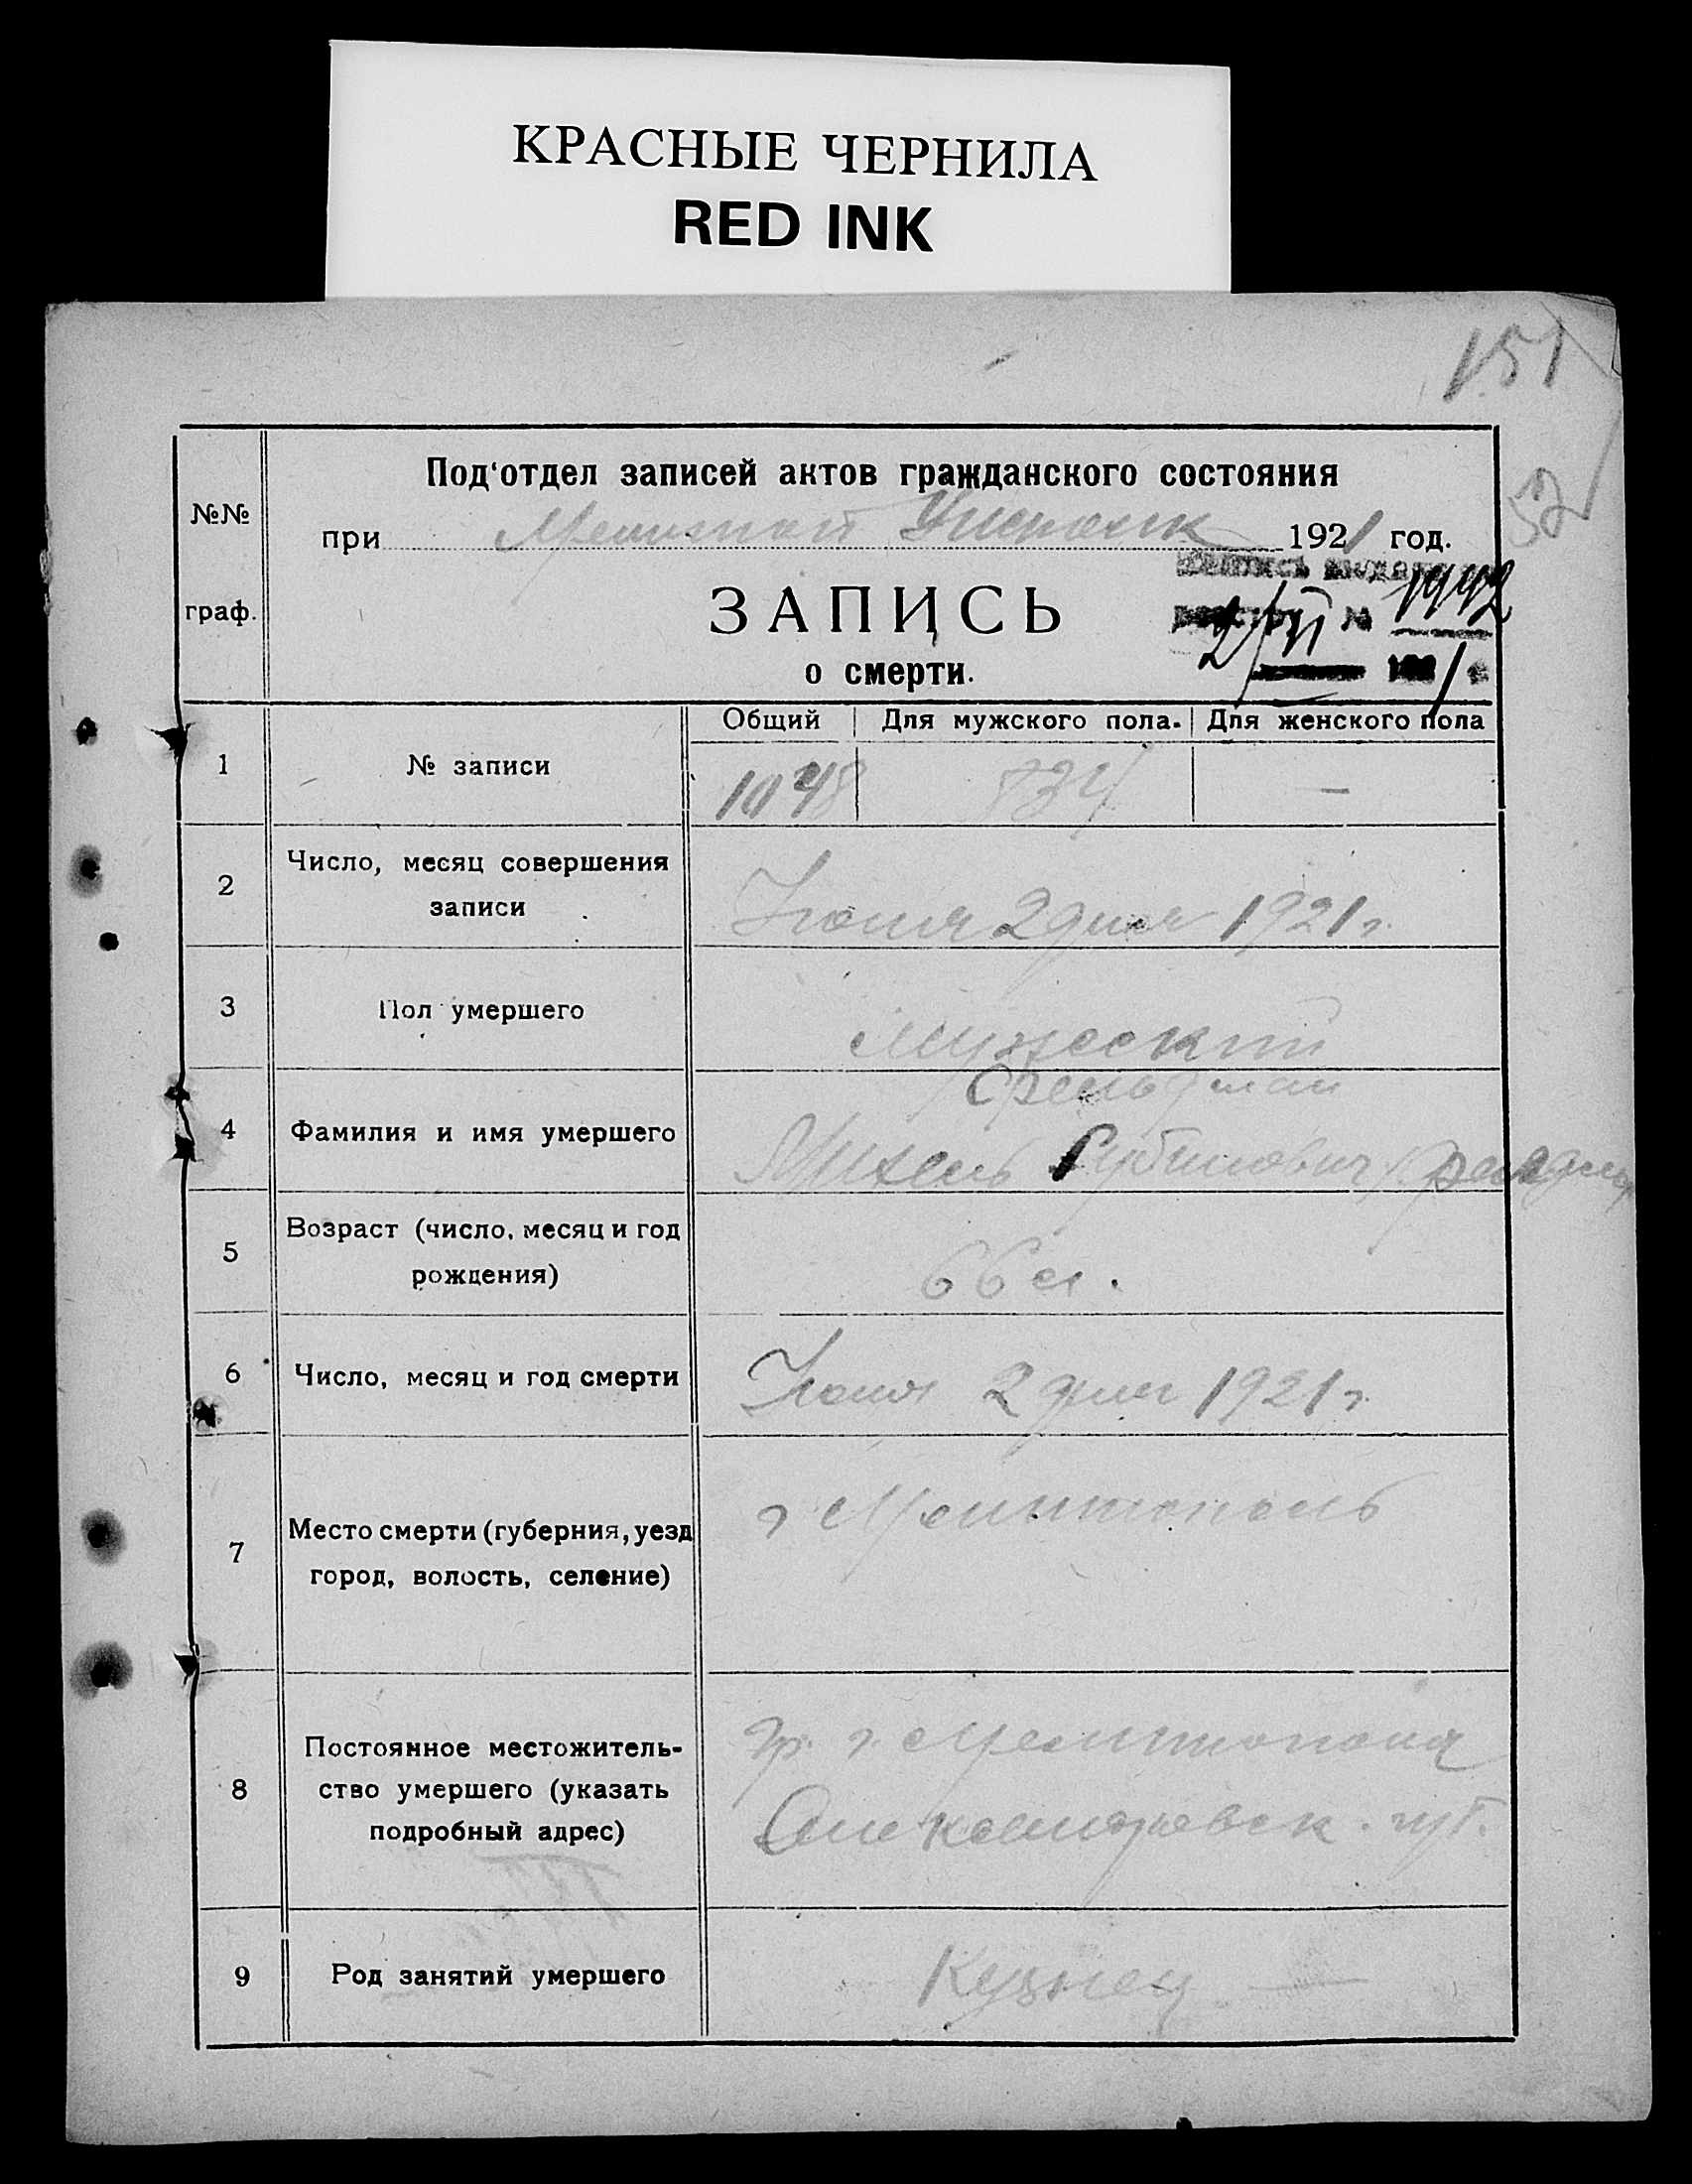 КРАСНЫЕ ЧЕРНИЛА
RED INK
151
52
Под‘отдел записей актов гражданского состояния
№№
граф.
при 1921 год.
ЗАПИСЬ
о смерти.
№ 1992
2/VI 1921 г.
Общий Для мужского пола. Для женского пола
1 № записи 1048 734 —
2 Число, месяц совершения
записи
Июня 2 дня 1921 г.
3 Пол умершего Мужеский
Фельдман
4 Фамилия и имя умершего Михель Рубинович Фельдман
5 Возраст (число, месяц и год
рождения)
66 л.
6 Число, месяц и год смерти Июня 2 дня 1921 г.
7 Место смерти (губерния, уезд
город, волость, селение)
г Мелитополь
8 Постоянное местожитель-
ство умершего (указать
подробный адрес)
гр. г. Мелитополя
Александровск. губ.
9 Род занятий умершего Кузнец —